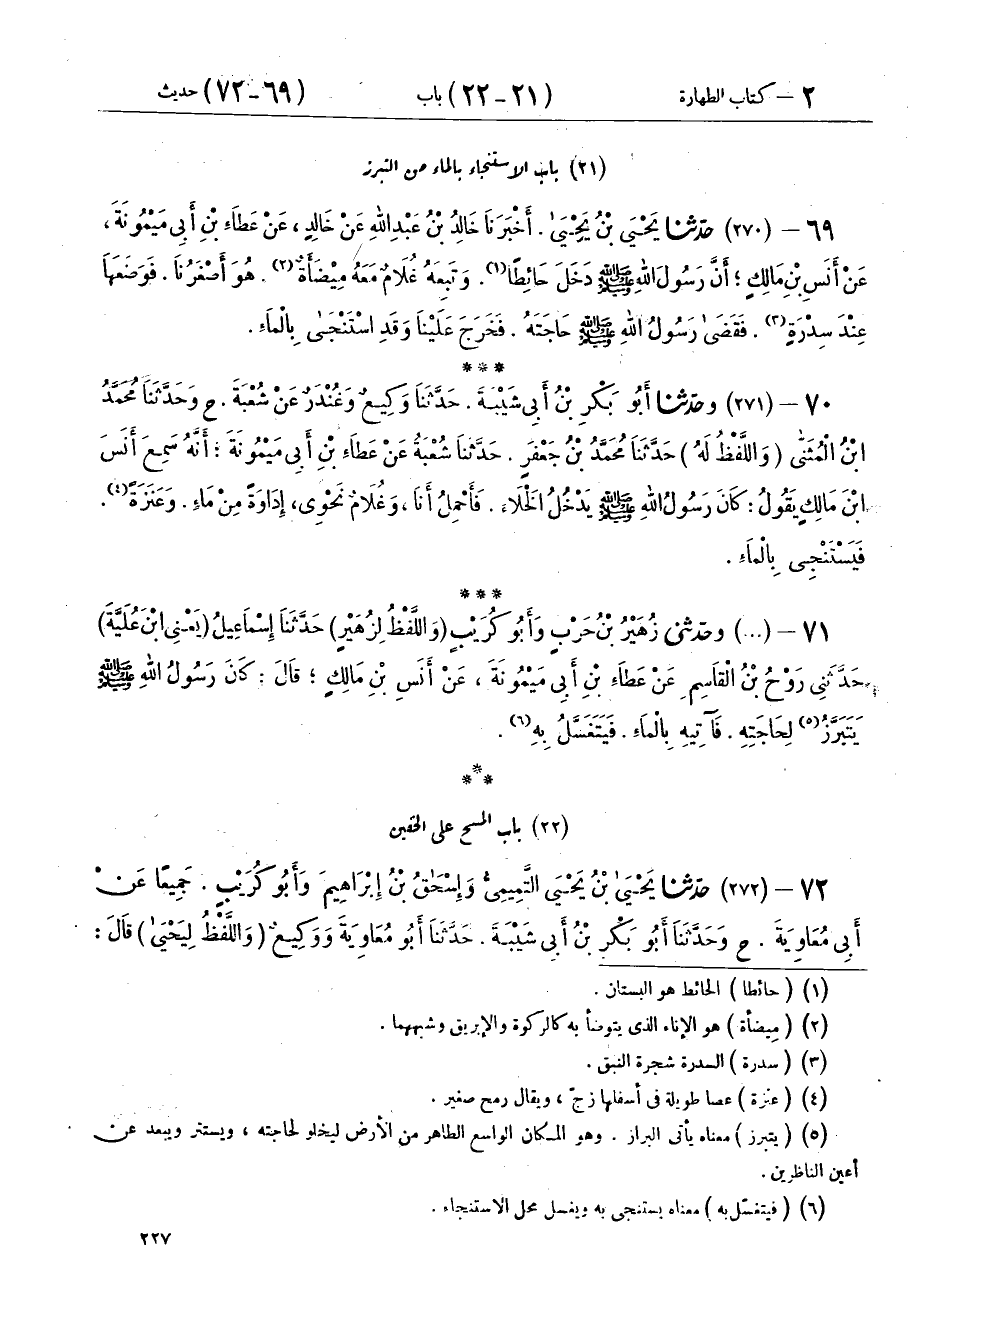 ٢ – كتاب الطهارة (٢١ - ٢٢) باب (٦٩ - ٧٢) حديث
(٢١) باب الاستنجاء بالماء من التبرز
٦٩ – (٢٧٠) حَدَّثَنَا يَحْيَى بْنُ يَحْيَىٰ . أَخْبَرَنَا خَالِدُ بْنُ عَبْدِاللهِ عَنْ خَالِدٍ ، عَنْ عَطَاءِ بْنِ أَبِي مَيْمُونَةَ ،
عَنْ أَنَسِ بْنِ مَالِكٍ ؛ أَنَّ رَسُولَ اللهِ ﷺ دَخَلَ حَائِطًا(١) . وَتَبِعَهُ غُلَامٌ مَعَهُ مِيضَأَةٌ(٢) . هُوَ أَصْغَرُنَا . فَوَضَعَهَا
عِنْدَ سِدْرَةٍ(٣) . فَقَضَىٰ رَسُولُ اللهِ ﷺ حَاجَتَهُ . فَخَرَجَ عَلَيْنَا وَقَدِ اسْتَنْجَىٰ بِالْمَاءِ .
***
٧٠ – (٢٧١) وحَدَّثَنَا أَبُو بَكْرِ بْنُ أَبِي شَيْبَةَ . حَدَّثَنَا وَكِيعٌ وَغُنْدَرٌ عَنْ شُعْبَةَ . ح وَحَدَّثَنَا مُحَمَّدُ
ابْنُ الْمُثَنَّىٰ ( وَاللَّفْظُ لَهُ ) حَدَّثَنَا مُحَمَّدُ بْنُ جَعْفَرٍ . حَدَّثَنَا شُعْبَةُ عَنْ عَطَاءِ بْنِ أَبِي مَيْمُونَةَ ؛ أَنَّهُ سَمِعَ أَنَسَ
ابْنَ مَالِكٍ يَقُولُ : كَانَ رَسُولُ اللهِ ﷺ يَدْخُلُ الْخَلَاءَ . فَأَحْمِلُ أَنَا ، وَغُلَامٌ نَحْوِي ، إِدَاوَةً مِنْ مَاءٍ . وَعَنَزَةً(٤) .
فَيَسْتَنْجِي بِالْمَاءِ .
***
٧١ – (...) وحَدَّثَنِي زُهَيْرُ بْنُ حَرْبٍ وَأَبُو كُرَيْبٍ (وَاللَّفْظُ لِزُهَيْرٍ) حَدَّثَنَا إِسْمَاعِيلُ (يَعْنِي ابْنَ عُلَيَّةَ)
حَدَّثَنِي رَوْحُ بْنُ الْقَاسِمِ عَنْ عَطَاءِ بْنِ أَبِي مَيْمُونَةَ ، عَنْ أَنَسِ بْنِ مَالِكٍ ؛ قَالَ : كَانَ رَسُولُ اللهِ ﷺ
يَتَبَرَّزُ(٥) لِحَاجَتِهِ . فَآتِيهِ بِالْمَاءِ . فَيَتَغَسَّلُ بِهِ(٦) .
***
(٢٢) باب المسح على الخفين
٧٢ – (٢٧٢) حَدَّثَنَا يَحْيَىٰ بْنُ يَحْيَى التَّمِيمِيُّ وَإِسْحَقُ بْنُ إِبْرَاهِيمَ وَأَبُو كُرَيْبٍ . جَمِيعًا عَنْ
أَبِي مُعَاوِيَةَ . ح وَحَدَّثَنَا أَبُو بَكْرِ بْنُ أَبِي شَيْبَةَ . حَدَّثَنَا أَبُو مُعَاوِيَةَ وَوَكِيعٌ ( وَاللَّفْظُ لِيَحْيَىٰ ) قَالَ :
(١) ( حائطا ) الحائط هو البستان .
(٢) ( مِيضأة ) هو الإناء الذى يتوضأ به كالركوة والإبريق وشبههما .
(٣) ( سدرة ) السدرة شجرة النبق .
(٤) ( عنزة ) عصا طويلة فى أسفلها زجّ ، ويقال رمح صغير .
(٥) ( يتبرز ) معناه يأتى البراز . وهو المكان الواسع الظاهر من الأرض ليخلو لحاجته ، ويستتر ويبعد عن
أعين الناظرين .
(٦) ( فيتغسّل به ) معناه يستنجى به ويغسل محل الاستنجاء .
٢٢٧